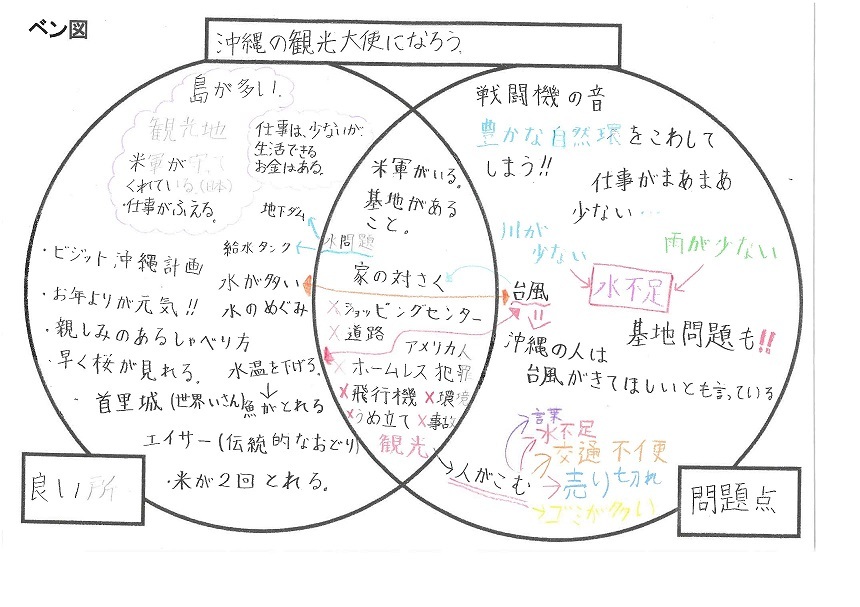 ベン図
沖縄の観光大使になろう。
島が多い。
観光地
米軍が守って
くれている(日本)
・仕事がふえる。
仕事は、少ないが、
生活できる
お金はある。
地下ダム
給水タンク
水問題
・ビジット沖縄計画
水が多い
・お年よりが元気!!
水のめぐみ
・親しみのあるしゃべり方
・早く桜が見れる。
水温を下げる。
↓
・首里城(世界いさん)
魚がとれる
エイサー(伝統的なおどり)
・米が2回とれる。
良い所
米軍がいる。
基地がある
こと。
家の対さく
×ショッピングセンター
×道路
アメリカ人
×ホームレス 犯罪
×飛行機 ×環境
×うめ立て ×事故
観光
戦闘機の音
豊かな自然環をこわして
しまう!!
仕事がまあまあ
少ない…
川が
少ない
雨が少ない
水不足
台風
基地問題も!!
沖縄の人は
台風がきてほしいとも言っている
→人がこむ
言葉
水不足
交通 不便
→売り切れ
→ゴミが多い
問題点